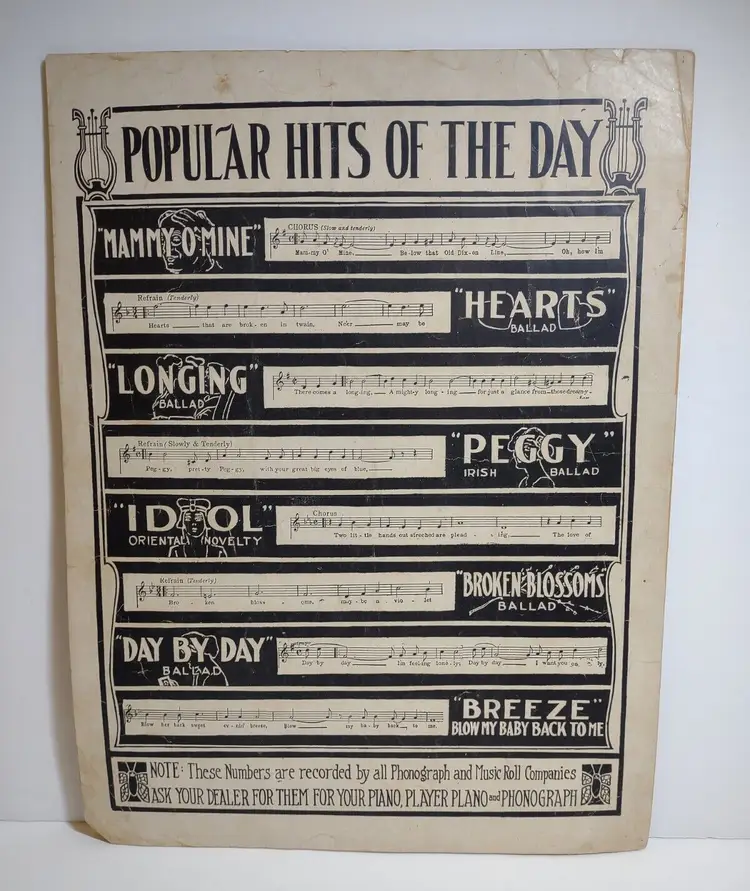 POPULAR HITS OF THE DAY
"MAMMY O'MINE"
CHORUS (Slow and tenderly)
Mam-my O' Mine, Be-low that Old Dix-en Line, Oh, how I'm
Refrain (Tenderly)
Hearts that are brok-en in twain, Ne'er may be
"HEARTS"
BALLAD
"LONGING"
BALLAD
There comes a long-ing, A might-y long-ing for just a glance from those dreamy
Refrain (Slowly & Tenderly)
Peg-gy, pret-ty Peg-gy, with your great big eyes of blue,
"PEGGY"
IRISH BALLAD
"IDOL"
ORIENTAL NOVELTY
Chorus
Two lit-tle hands out stretched are plead-ing, The love of
Refrain (Tenderly)
Bro-ken Bloss-oms, may-be a vio-let
"BROKEN BLOSSOMS"
BALLAD
"DAY BY DAY"
BALLAD
Day by day I'm feeling lone-ly; Day by day I want you on-ly,
Blow her back sweet breeze, Blow my ba-by back to me.
"BREEZE"
BLOW MY BABY BACK TO ME
NOTE: These Numbers are recorded by all Phonograph and Music Roll Companies
ASK YOUR DEALER FOR THEM FOR YOUR PIANO, PLAYER PLANO and PHONOGRAPH